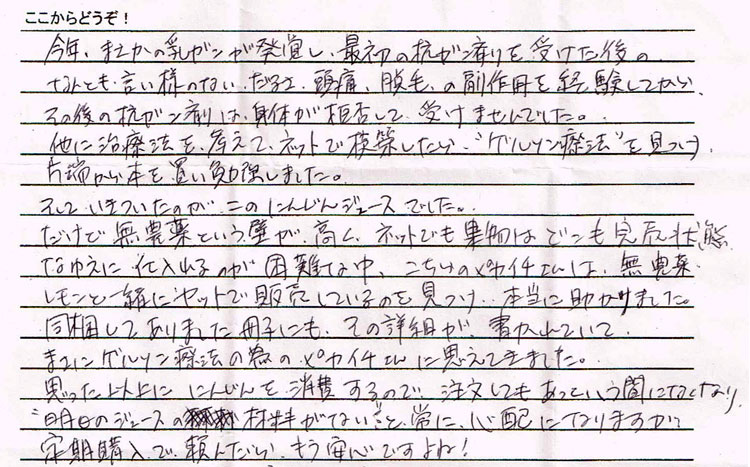 ここからどうぞ！
今年、まさかの乳ガンが発覚し、最初の抗がン剤を受けた後の
なんとも言い様のない、だるさ、頭痛、脱毛、の副作用を経験してから、
その後の抗ガン剤は、身体が拒否して、受けませんでした。
他に治療法を、考えて、ネットで模築したら、"ゲルソン療法"を見つけ、
片端から本を買い勉強しました。
そして、いきついたのが、このにんじんジュースでした。
だけど無農薬という壁が、高く、ネットでも果物はどこも完売状態
なゆえに仕入れるのが困難な中、こちらのピカイチさんは、無農薬
レモンと一緒にセットで販売しているのを見つけ、本当に助かりました。
同梱してありました冊子にも、その詳細が、書かれていて、
まさにゲルソン療法の為のピカイチさんに思えてきました。
思った以上に、にんじんを、消費するので、注文してもあっという間になくなり、
"明日のジュースの材料がない"と、常に、心配になりますが、
定期購入で、頼んだら、もう安心ですよね！